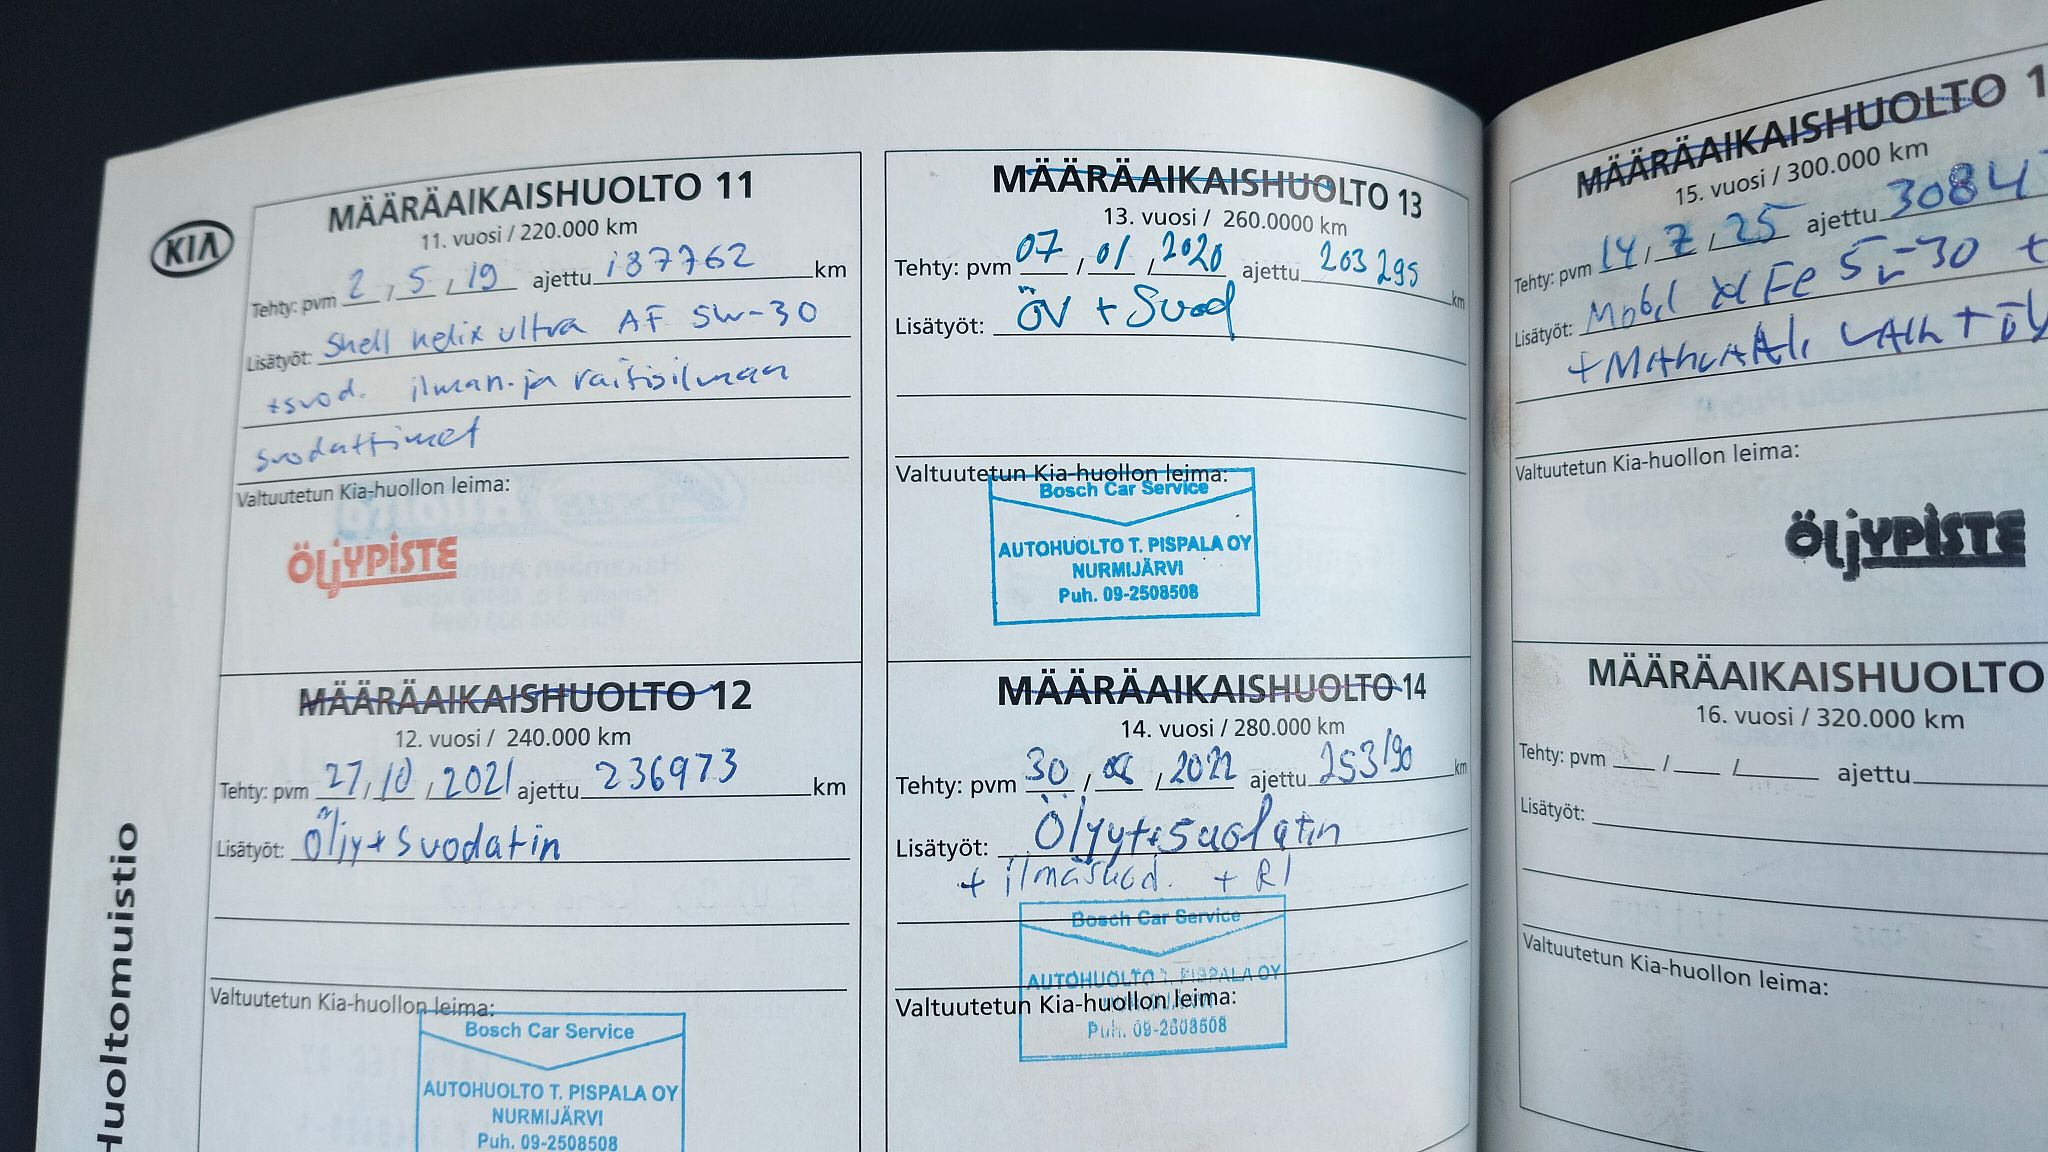 KIA
Huoltomuistio
MÄÄRÄAIKAISHUOLTO 11
11. vuosi / 220.000 km
Tehty: pvm 2 / 5 / 19 ajettu 187762 km
Lisätyöt: Shell Helix ultra AF 5w-30
+suod. ilman- ja raitisilman
suodattimet
Valtuutetun Kia-huollon leima:
ÖLJYPISTE
MÄÄRÄAIKAISHUOLTO 12
12. vuosi / 240.000 km
Tehty: pvm 27 / 10 / 2021 ajettu 236973 km
Lisätyöt: Öljy + Suodatin
Valtuutetun Kia-huollon leima:
Bosch Car Service
AUTOHUOLTO T. PISPALA OY
NURMIJÄRVI
Puh. 09-2508508
MÄÄRÄAIKAISHUOLTO 13
13. vuosi / 260.0000 km
Tehty: pvm 07 / 01 / 2020 ajettu 203295 km
Lisätyöt: ÖV + Suod
Valtuutetun Kia-huollon leima:
Bosch Car Service
AUTOHUOLTO T. PISPALA OY
NURMIJÄRVI
Puh. 09-2508508
MÄÄRÄAIKAISHUOLTO 14
14. vuosi / 280.000 km
Tehty: pvm 30 / / 2022 ajettu 253190 km
Lisätyöt: Öljyt+Suodatin
+ ilmasuod. + RI
Bosch Car Service
AUTOHUOLTO T. PISPALA OY
Valtuutetun Kia-huollon leima:
NURMIJÄRVI
Puh. 09-2508508
MÄÄRÄAIKAISHUOLTO 1
15. vuosi / 300.000 km
Tehty: pvm 14 / 7 / 25 ajettu 3084
Lisätyöt: Mobil x1 FE 5w-30 +
Valtuutetun Kia-huollon leima:
ÖLJYPISTE
MÄÄRÄAIKAISHUOLTO
16. vuosi / 320.000 km
Tehty: pvm / / ajettu
Lisätyöt:
Valtuutetun Kia-huollon leima: